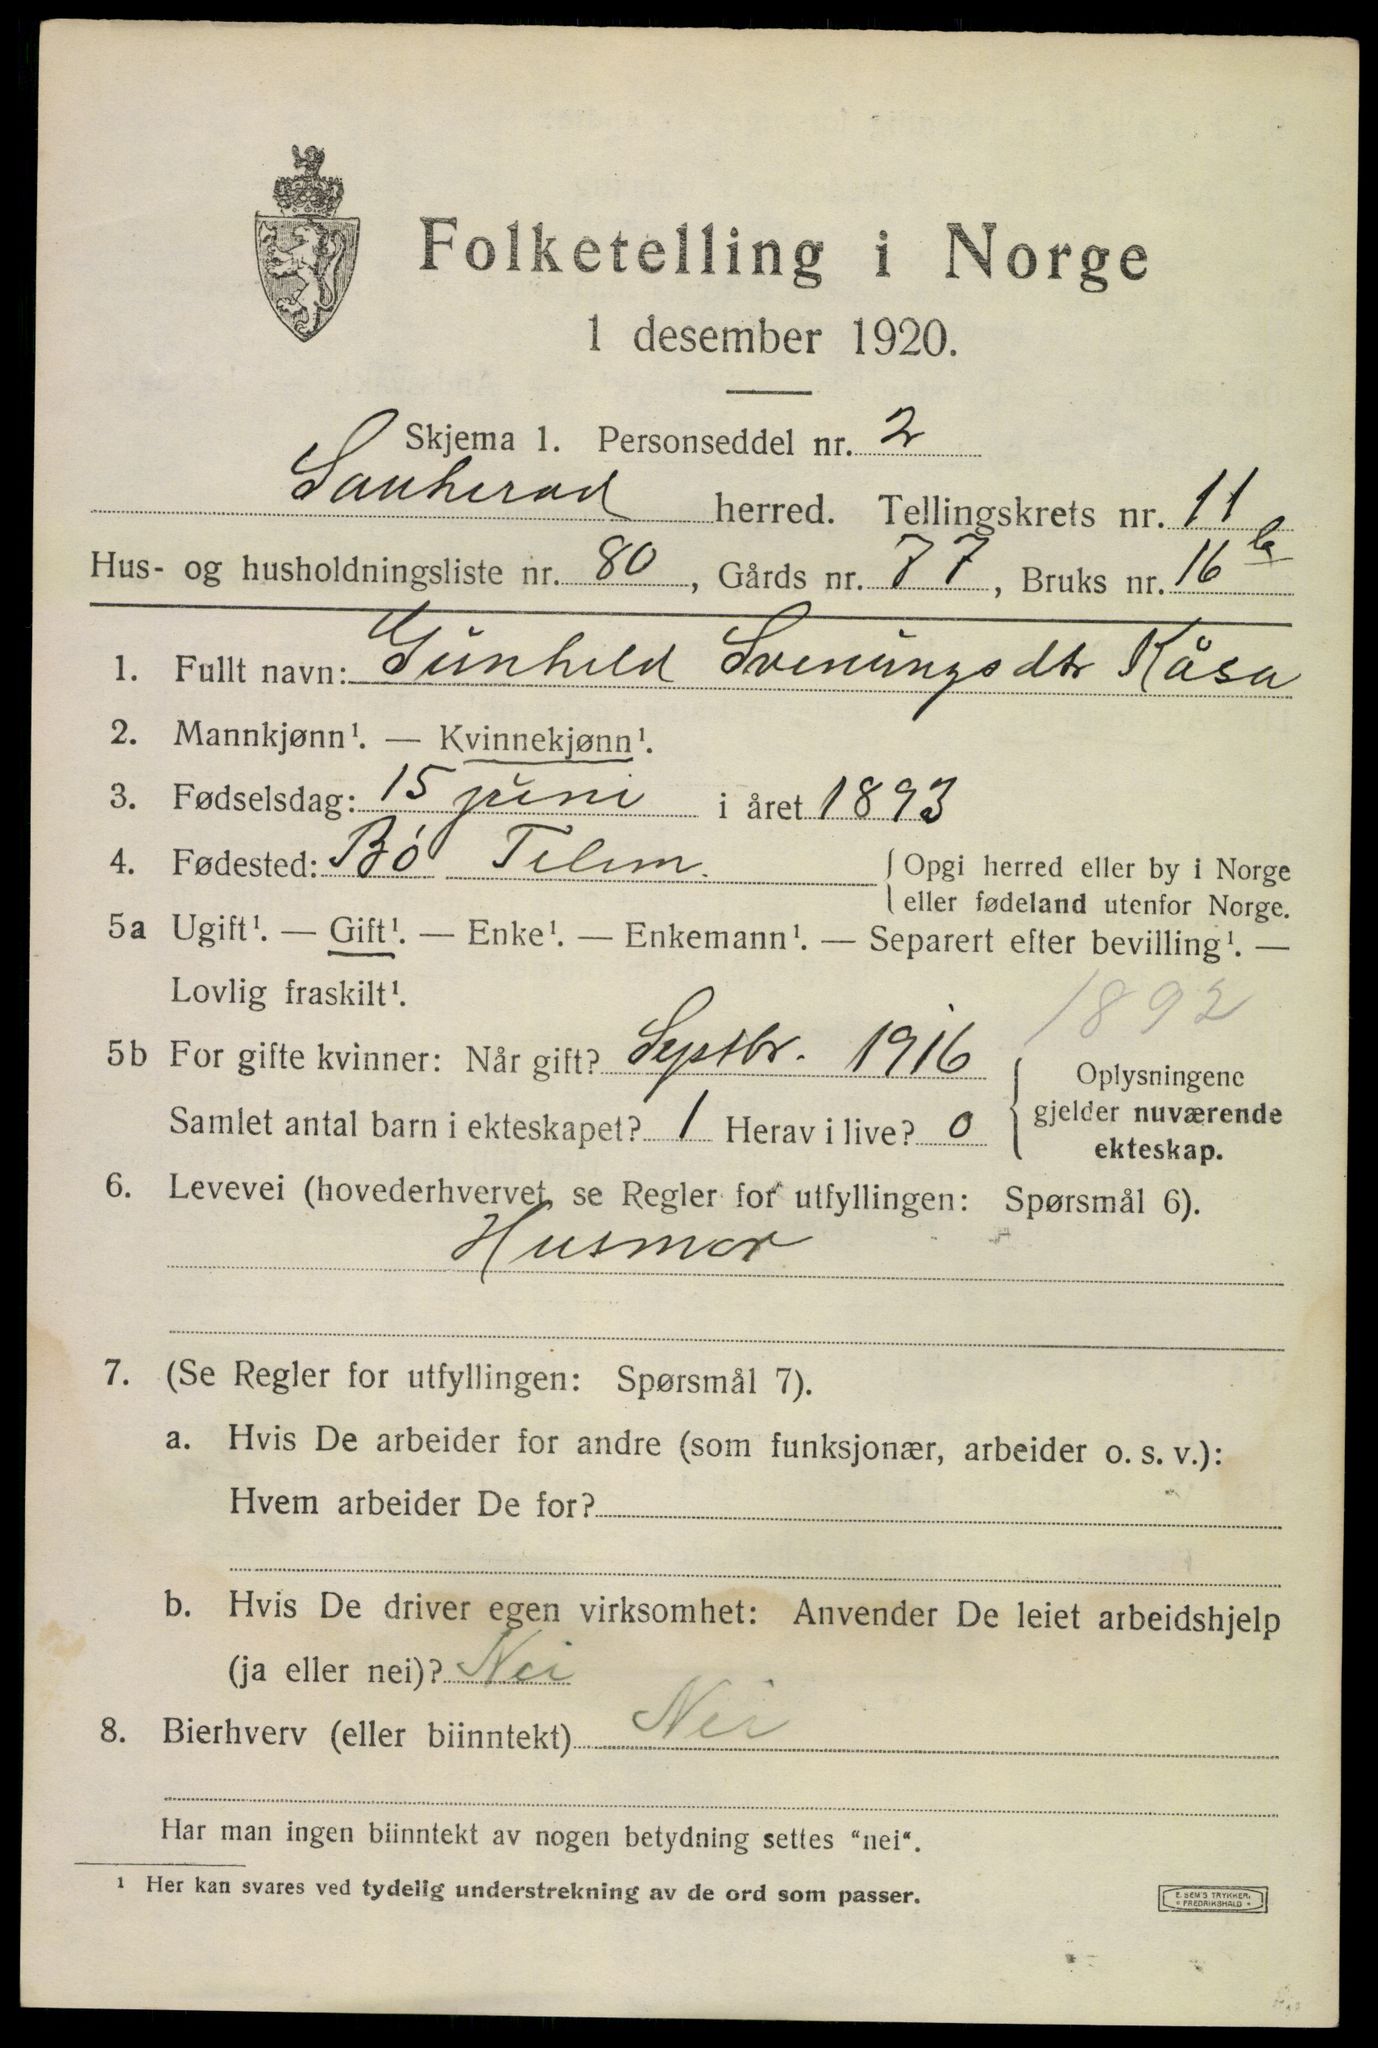 Folketelling i Norge
1 desember 1920.
Skjema 1. Personseddel nr. 2
Sauherad herred. Tellingskrets nr. 11
Hus- og husholdningsliste nr. 80, Gårds nr. 77, Bruks nr. 16 b
1. Fullt navn: Gunhild Sveinungsdtr Kåsa
2. Mannkjønn¹. — Kvinnekjønn¹.
3. Fødselsdag: 15 juni i året 1893
4. Fødested: Bó Telem. Opgi herred eller by i Norge
eller fødeland utenfor Norge.
5a Ugift¹. — Gift¹. — Enke¹. — Enkemann¹. — Separert efter bevilling¹. —
Lovlig fraskilt¹. 1892
5b For gifte kvinner: Når gift? Septbr. 1916 Oplysningene
Samlet antal barn i ekteskapet? 1 Herav i live? 0 gjelder nuværende
ekteskap.
6. Levevei (hovederhvervet, se Regler for utfyllingen: Spørsmål 6).
Husmor
7. (Se Regler for utfyllingen: Spørsmål 7).
a. Hvis De arbeider for andre (som funksjonær, arbeider o. s. v.):
Hvem arbeider De for?
b. Hvis De driver egen virksomhet: Anvender De leiet arbeidshjelp
(ja eller nei)? Nei
8. Bierhverv (eller biinntekt) Nei
Har man ingen biinntekt av nogen betydning settes "nei".
¹ Her kan svares ved tydelig understrekning av de ord som passer.
E. SEM'S TRYKKER.
* FREDRIKSHALD *